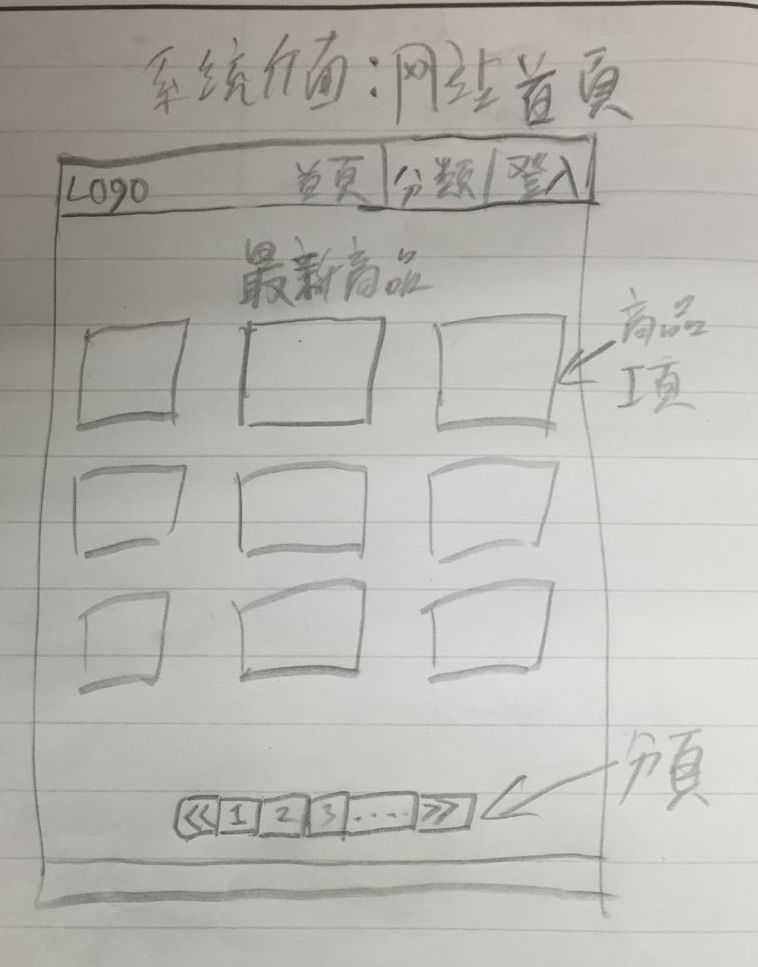 系统介面:网站首頁
LOGO 首页 分類 登入
最新商品
商品
工頁
<< 1 2 3 ..... >>
分頁